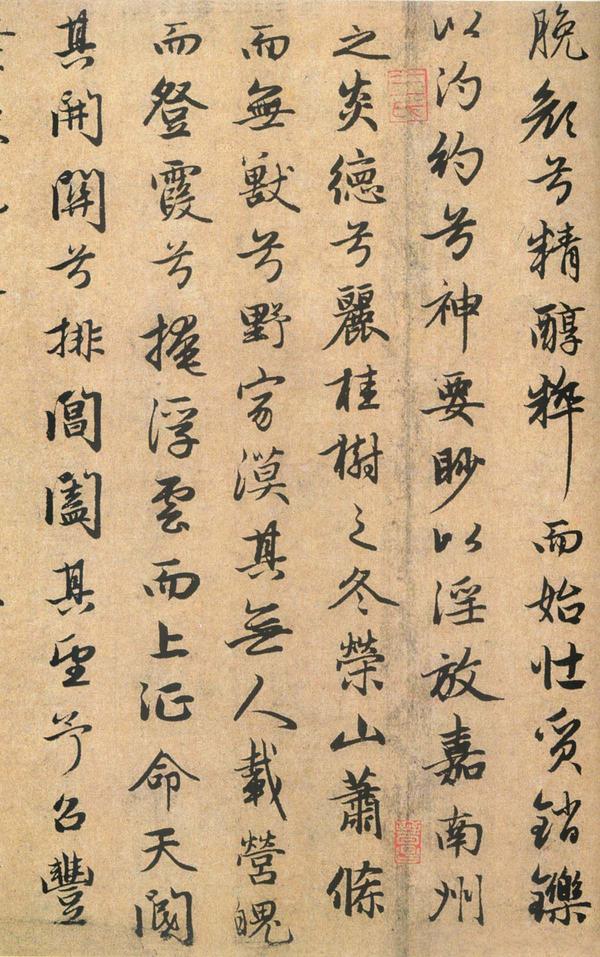 脕顏兮精醇粹而始壯質銷鑠
以汋約兮神要眇以淫放嘉南州
之炎德兮麗桂樹之冬榮山蕭條
而無獸兮野寂漠其無人載營魄
而登霞兮掩浮雲而上征命天閽
其開關兮排閶闔其望予召豐